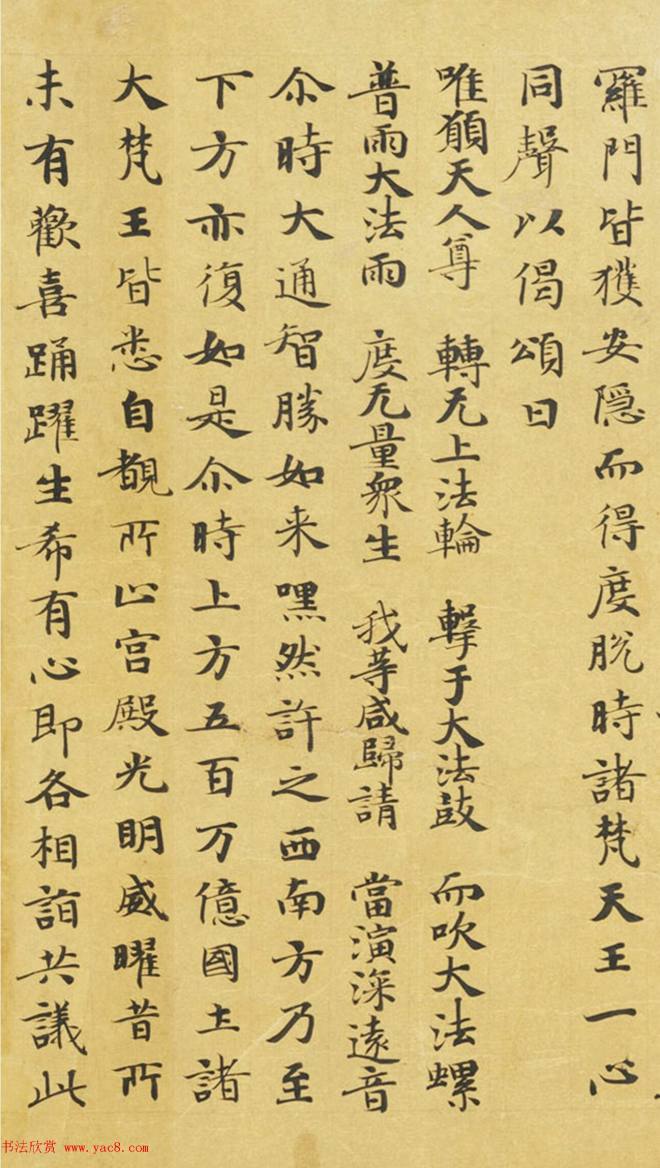 羅門皆獲安隱而得度脫時諸梵天王一心
同聲以偈頌曰
唯願天人尊 轉无上法輪 擊于大法鼓 而吹大法螺
普雨大法雨 度无量眾生 我等咸歸請 當演深遠音
尒時大通智勝如来嘿然許之西南方乃至
下方亦復如是尒時上方五百万億國土諸
大梵王皆悉自覩所止宮殿光明威曜昔所
未有歡喜踊躍生希有心即各相詣共議此
书法欣赏 www.yac8.com